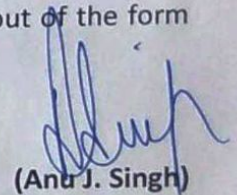 out of the form
(Anu J. Singh)